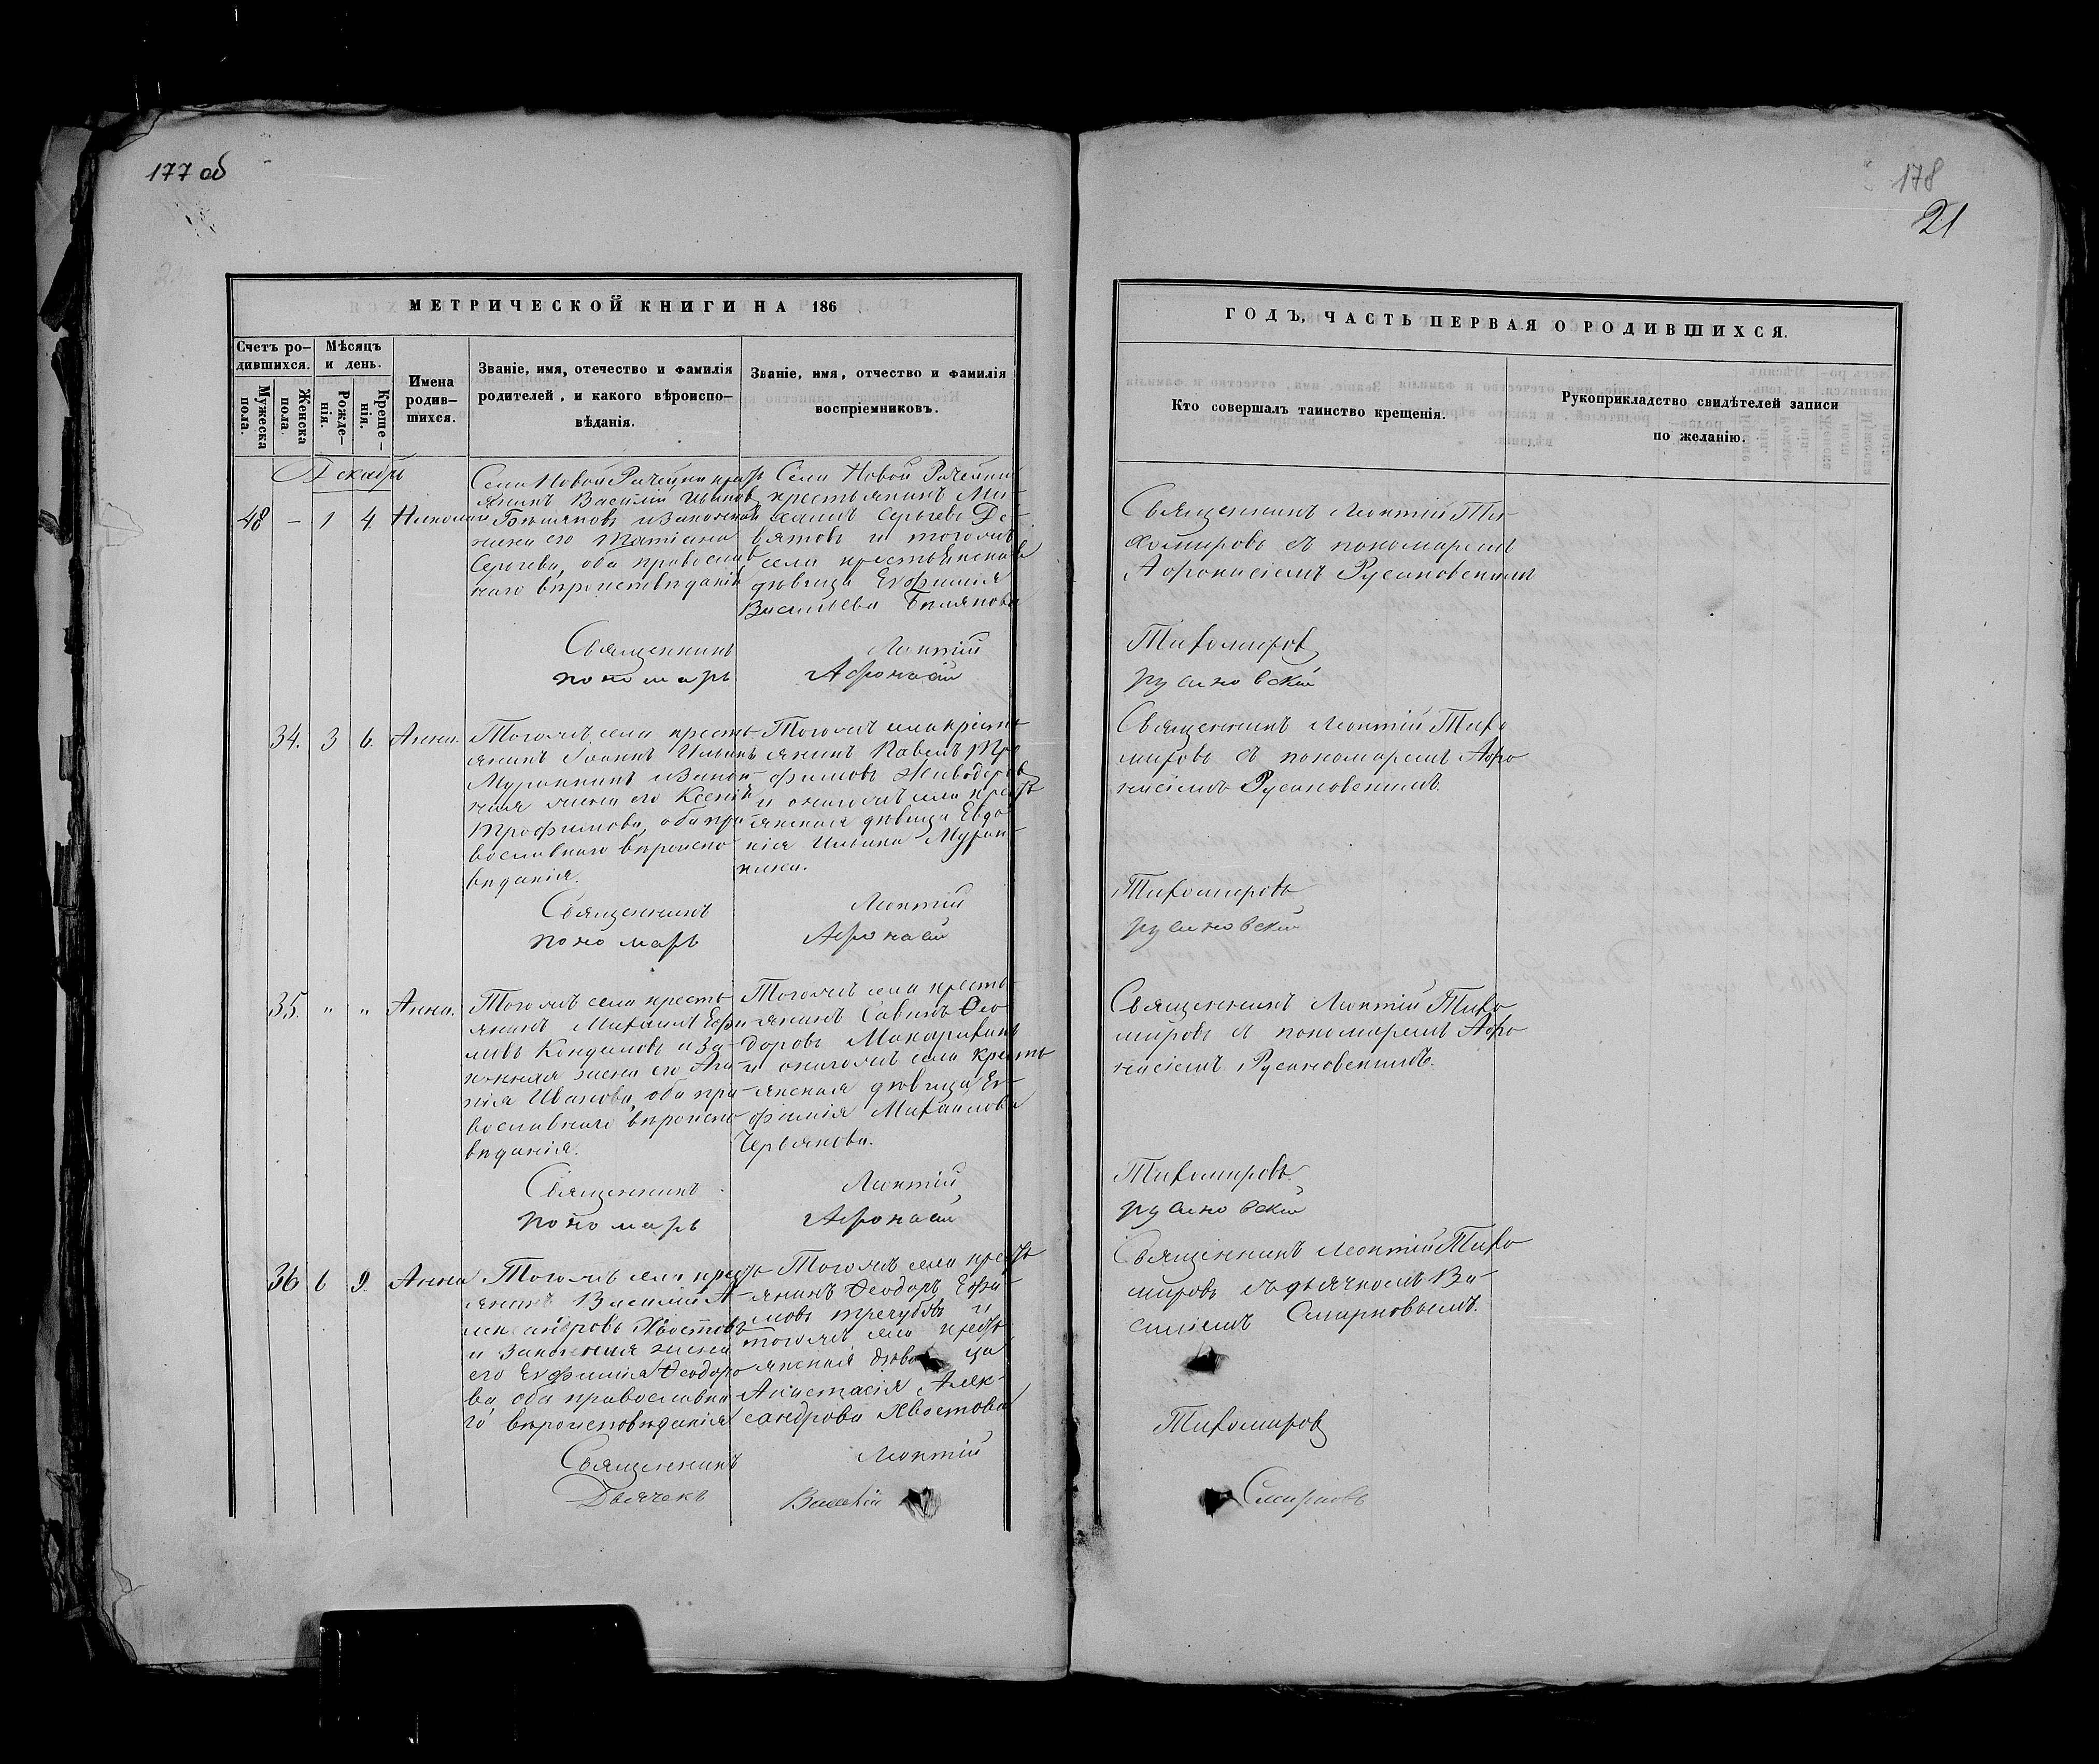 177 об
178
21
МЕТРИЧЕСКОЙ КНИГИ НА 186
ГОДЪ, ЧАСТЬ ПЕРВАЯ О РОДИВШИХСЯ.
Счетъ ро-
дившихся.
Мужеска
пола.
Женска
пола
Мѣсяцъ
и день.
Рожде-
нія.
Креще-
нія.
Имена
родив-
шихся.
Званіе, имя, отечество и фамилія
родителей, и какого вѣроиспо-
вѣданія.
Званіе, имя, отчество и фамилія
воспріемниковъ.
Кто совершалъ таинство крещенія.
Рукоприкладство свидѣтелей записи
по желанію.
Декабрь
48 - 1 4 Николай
Села Новой Рачейки кресть
янинъ Василій Ивановъ
Бѣляковъ и законная
жена его Татіана
Сергѣева, оба православ
наго вѣроисповѣданія
Села Новой Рачейки
крестьянинъ Ми-
хаилъ Сергѣевъ Де-
вятовъ и тогожъ
села крестьянская
дѣвица Евфимія
Васильева Бѣлякова
Священникъ Леонтій Ти-
хомировъ съ пономаремъ
Афонасіемъ Русановскимъ
Священникъ Леонтій Тихомировъ
пономарь Афонасій русановскій
34. 3 6. Анна.
Тогожъ села кресть-
янинъ Іоаннъ Ильинъ
Муранкинъ и закон-
ная жена его Ксенія
Трофимова, оба пра-
вославнаго вѣроиспо
вѣданія.
Тогожъ села кресть
янинъ Павелъ Тро
фимовъ Живодеровъ
и онагожъ села кресть
янская дѣвица Евдо
кія Ильина Муран-
кина.
Священникъ Леонтій Тихо
мировъ съ пономаремъ Афо
насіемъ Русановскимъ.
Священникъ Леонтій Тихомировъ
пономарь Афонасій русановскій
35. " " Анна.
Тогожъ села кресть
янинъ Михаилъ Ефи
мовъ Кондаловъ и за-
конная жена его Ага-
пія Иванова, оба пра-
вославнаго вѣроиспо
вѣданія.
Тогожъ села кресть
янинъ Савинъ Ѳео
доровъ Макарихинъ
и онагожъ села кресть
янская дѣвица Ев-
фимія Михайлова
Червякова.
Священникъ Леонтій Тихо
мировъ съ пономаремъ Афо
насіемъ Русановскимъ.
Священникъ Леонтій Тихомировъ.
пономарь Афонасій русановскій
36 6 9. Анна
Тогожъ села кресть-
янинъ Василій А-
лександровъ Хвостовъ
и законная жена
его Евфимія Ѳеодоро
ва, оба православна
го вѣроисповѣданія
Тогожъ села кресть
янинъ Ѳеодоръ Ефи-
мовъ Трегубовъ и
тогожъ села кресть
янская дѣвица
Анастасія Алек-
сандрова Хвостова
Священникъ Леонтій Тихо
мировъ съ дьячкомъ Ва-
силіемъ Смирновымъ.
Священникъ Леонтій Тихомировъ
Дьячекъ Василій Смирновъ